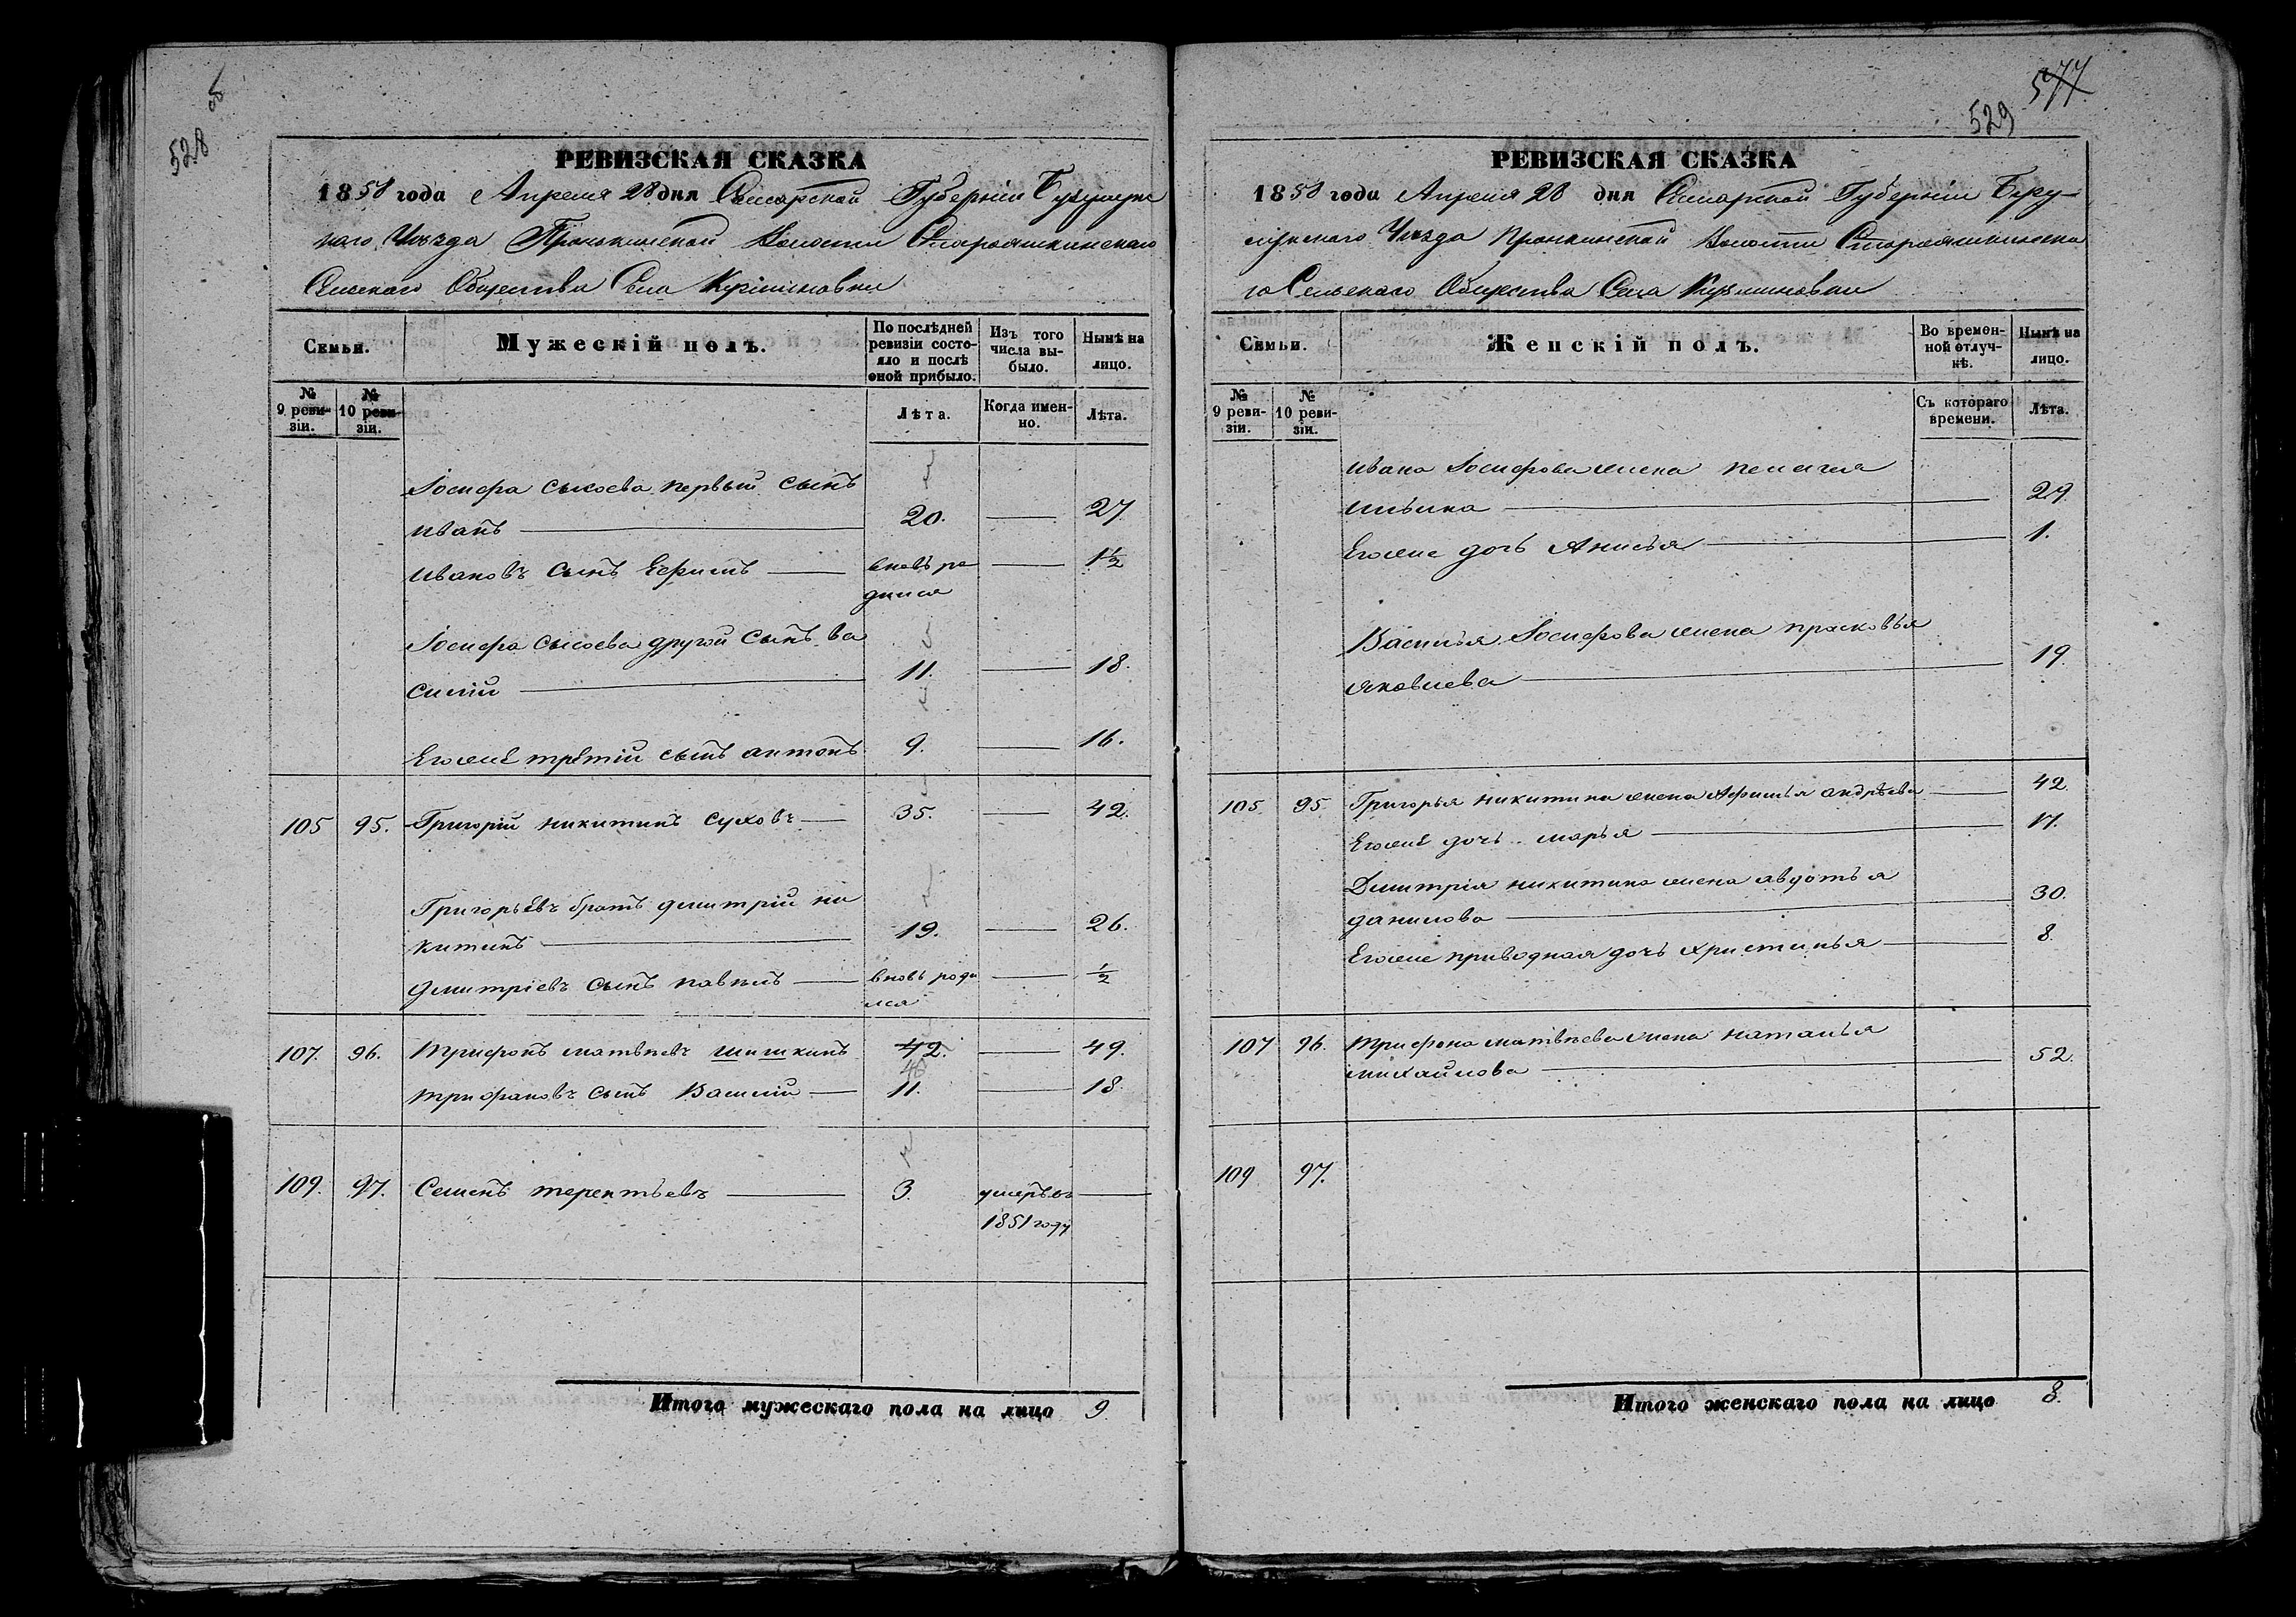 528
об
РЕВИЗСКАЯ СКАЗКА
1858 года Апреля 28 дня Самарской Губерніи Бузулукс
каго Уѣзда Пронькинской Волости Староашкинскаго
Сельскаго Общества Села Кузминовки
Семьи.
Мужескій полъ.
По послѣдней
ревизіи состо-
яло и послѣ
оной прибыло.
Изъ того
числа вы-
было.
Нынѣ на
лицо.
№
9 реви-
зіи.
№
10 реви-
зіи.
Лѣта.
Когда имен-
но.
Лѣта.
Іосифа сысоева первый сынъ
иванъ 20. 27.
ивановъ сынъ Ефимъ вновь ро 1½
дился
Іосифа сысоева другой сынъ ва
силій 11. 18.
Егоже третій сынъ антонъ 9. 16.
105 95. Григорій никитинъ суховъ 35. 42.
Григорьевъ братъ дмитрій ни
китинъ 19. 26.
дмитріевъ сынъ павелъ вновь роди ½
лся
107. 96. трифонъ матвѣевъ шишкинъ 42. 49.
трифоновъ сынъ Василій 11. 18.
109. 97. Семенъ терентьевъ 3. умеръ въ
1851 году
Итого мужескаго пола на лицо 9.
577
529
РЕВИЗСКАЯ СКАЗКА
1858 года Апреля 28 дня Самарской Губерніи Бузу-
лукскаго Уѣзда Пронкинской Волости Староашкинска
го Сельскаго Общества Села Кузминовки
Семьи.
Женскій полъ.
Во времен-
ной отлуч-
кѣ.
Нынѣ на
лицо.
№
9 реви-
зіи.
№
10 реви-
зіи.
Съ котораго
времени.
Лѣта.
ивана Іосифова жена пелагея
ильина 29.
Егоже дочь Анисья 1.
Василья Іосифова жена прасковья
яковлева 19.
105 95. Григорья никитина жена Афимья андрѣева 42.
Егоже дочь марья 17.
Дмитрія никитина жена авдотья
данилова 30.
Егоже приводная дочь христинья 8.
107 96. трифона матвѣева жена наталья
михайлова 52.
109 97.
Итого женскаго пола на лицо 8.